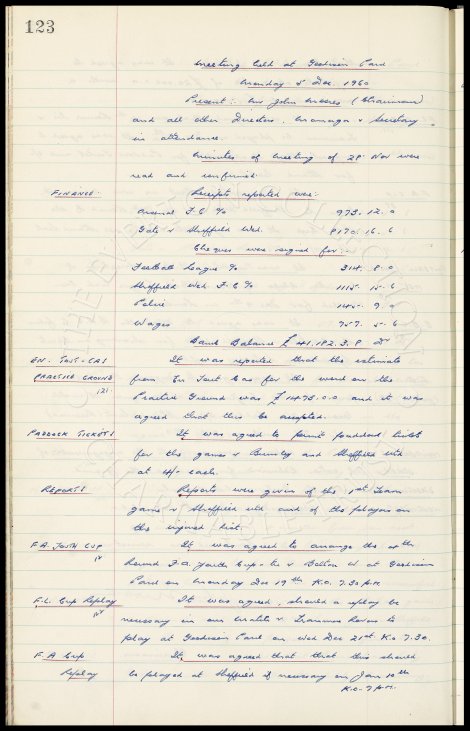 123
Meeting held at Goodison Park
Monday 5 Dec. 1960
Present :- Mr John Moores (Chairman)
and all other Directors. Manager & Secretary
in attendance.
Minutes of meeting of 28 Nov were
read and confirmed.
FINANCE. Receipts reported were:
Arsenal F.C. % 973. 12. 0
Gate v Sheffield Wed. 8170. 16. 6
Cheques were signed for :-
Football League % 314. 8. 0
Sheffield Wed F.C % 1115. 15. 6
Police 145. 9. 0
Wages 757. 5. 6
Bank Balance £41.182.3.8 Dr
EN-TOUT-CAS It was reported that the estimate
PRACTICE GROUND from En Tout Cas for the work on the
Practice Ground was £1473.0.0 and it was
agreed that this be accepted.
PADDOCK TICKETS It was agreed to print paddock tickets
for the games v Burnley and Sheffield Utd
at 4/- each.
REPORTS Reports were given of the 1st Team
game v Sheffield Wed and of the players on
the injured list.
F.A. YOUTH CUP It was agreed to arrange the
Round F.A. Youth Cup-tie v Bolton W at Goodison
Park on Monday Dec 19th K.O. 7.30 p.m.
F.L. Cup Replay It was agreed, should a replay be
necessary in our match v Tranmere Rovers to
play at Goodison Park on Wed Dec 21st K.O 7.30.
F.A Cup It was agreed that that this should
Replay be played at Sheffield if necessary on Jan 10th
K.O. 7 P.M.